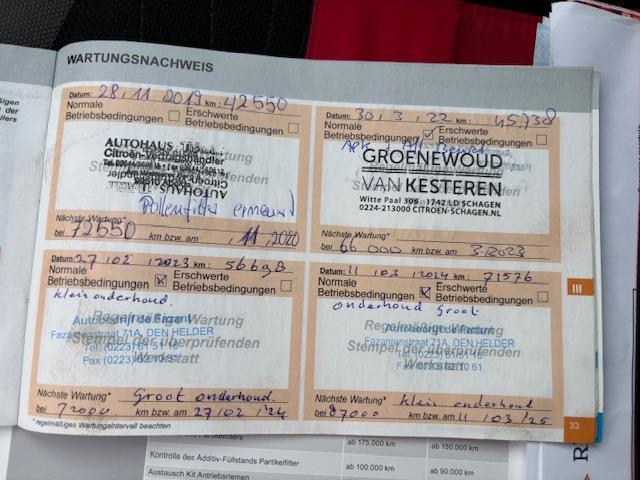 WARTUNGSNACHWEIS
Datum: 28.11.2019 km: 42550
Normale Betriebsbedingungen
Erschwerte Betriebsbedingungen
AUTOHAUS
Citroën-Vertragshändler
Pollenfilter erneuert
Nächste Wartung*
bei 72550 km bzw. am 11.2020
Datum: 30/3/22 km: 45738
Normale Betriebsbedingungen
Erschwerte Betriebsbedingungen
APK +
GROENEWOUD
VAN KESTEREN
Witte Paal 306 1742 LD SCHAGEN
0224-213000 CITROEN-SCHAGEN.NL
Nächste Wartung*
bei 66000 km bzw. am 3/2023
Datum: 27/02/2023 km: 56698
Normale Betriebsbedingungen
Erschwerte Betriebsbedingungen
klein onderhoud.
Regelmäßige Wartung
Autobedrijf de Fazant
Stempel der überprüfenden
Fazantenstraat 71A, DEN HELDER
Tel. (0223) 61 51 16
Werkstatt
Fax (0223) 62 10 61
Nächste Wartung* Groot onderhoud.
bei 72000 km bzw. am 27/02/'24
* regelmäßiges Wartungsintervall beachten
Datum: 11/03/2024 km: 71576
Normale Betriebsbedingungen
Erschwerte Betriebsbedingungen
onderhoud Groot
Regelmäßige Wartung
Fazantenstraat 71A, DEN HELDER
Stempel der überprüfenden
Werkstatt
Nächste Wartung* klein onderhoud
bei 87000 km bzw. am 11/03/25
III
33
ab 175.000 km
ab 150.000 km
Kontrolle des Additiv-Füllstands Partikelfilter
ab 100.000 km
ab 90.000 km
Austausch Kit Antriebsriemen